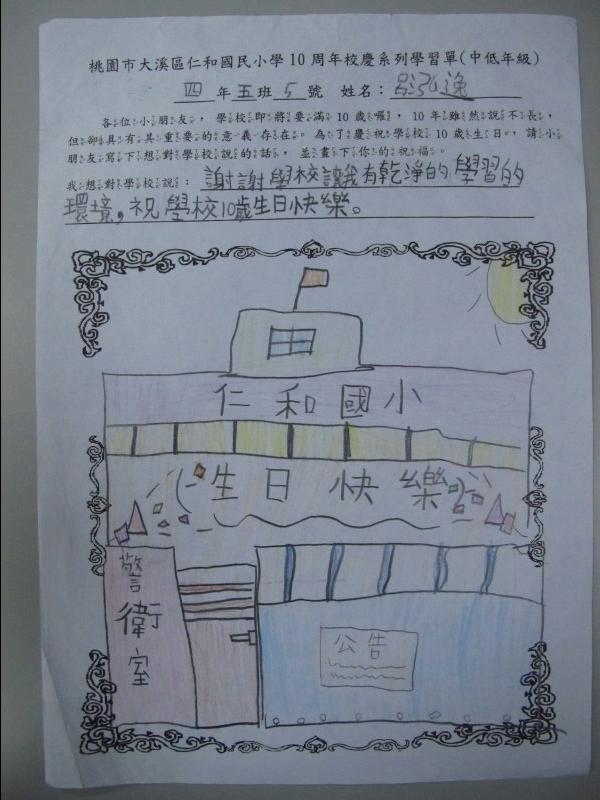 桃園市大溪區仁和國民小學10周年校慶系列學習單(中低年級)
四年五班5號 姓名：呂泓逸
各位小朋友，學校即將要滿10歲囉，10年雖然說不長，
但卻具有其重要的意義存在。為了慶祝學校10歲生日，請小
朋友寫下想對學校說的話，並畫下你的祝福。
我想對學校說：謝謝學校讓我有乾淨的學習的
環境，祝學校10歲生日快樂。
仁和國小
生日快樂
警衛室
公告